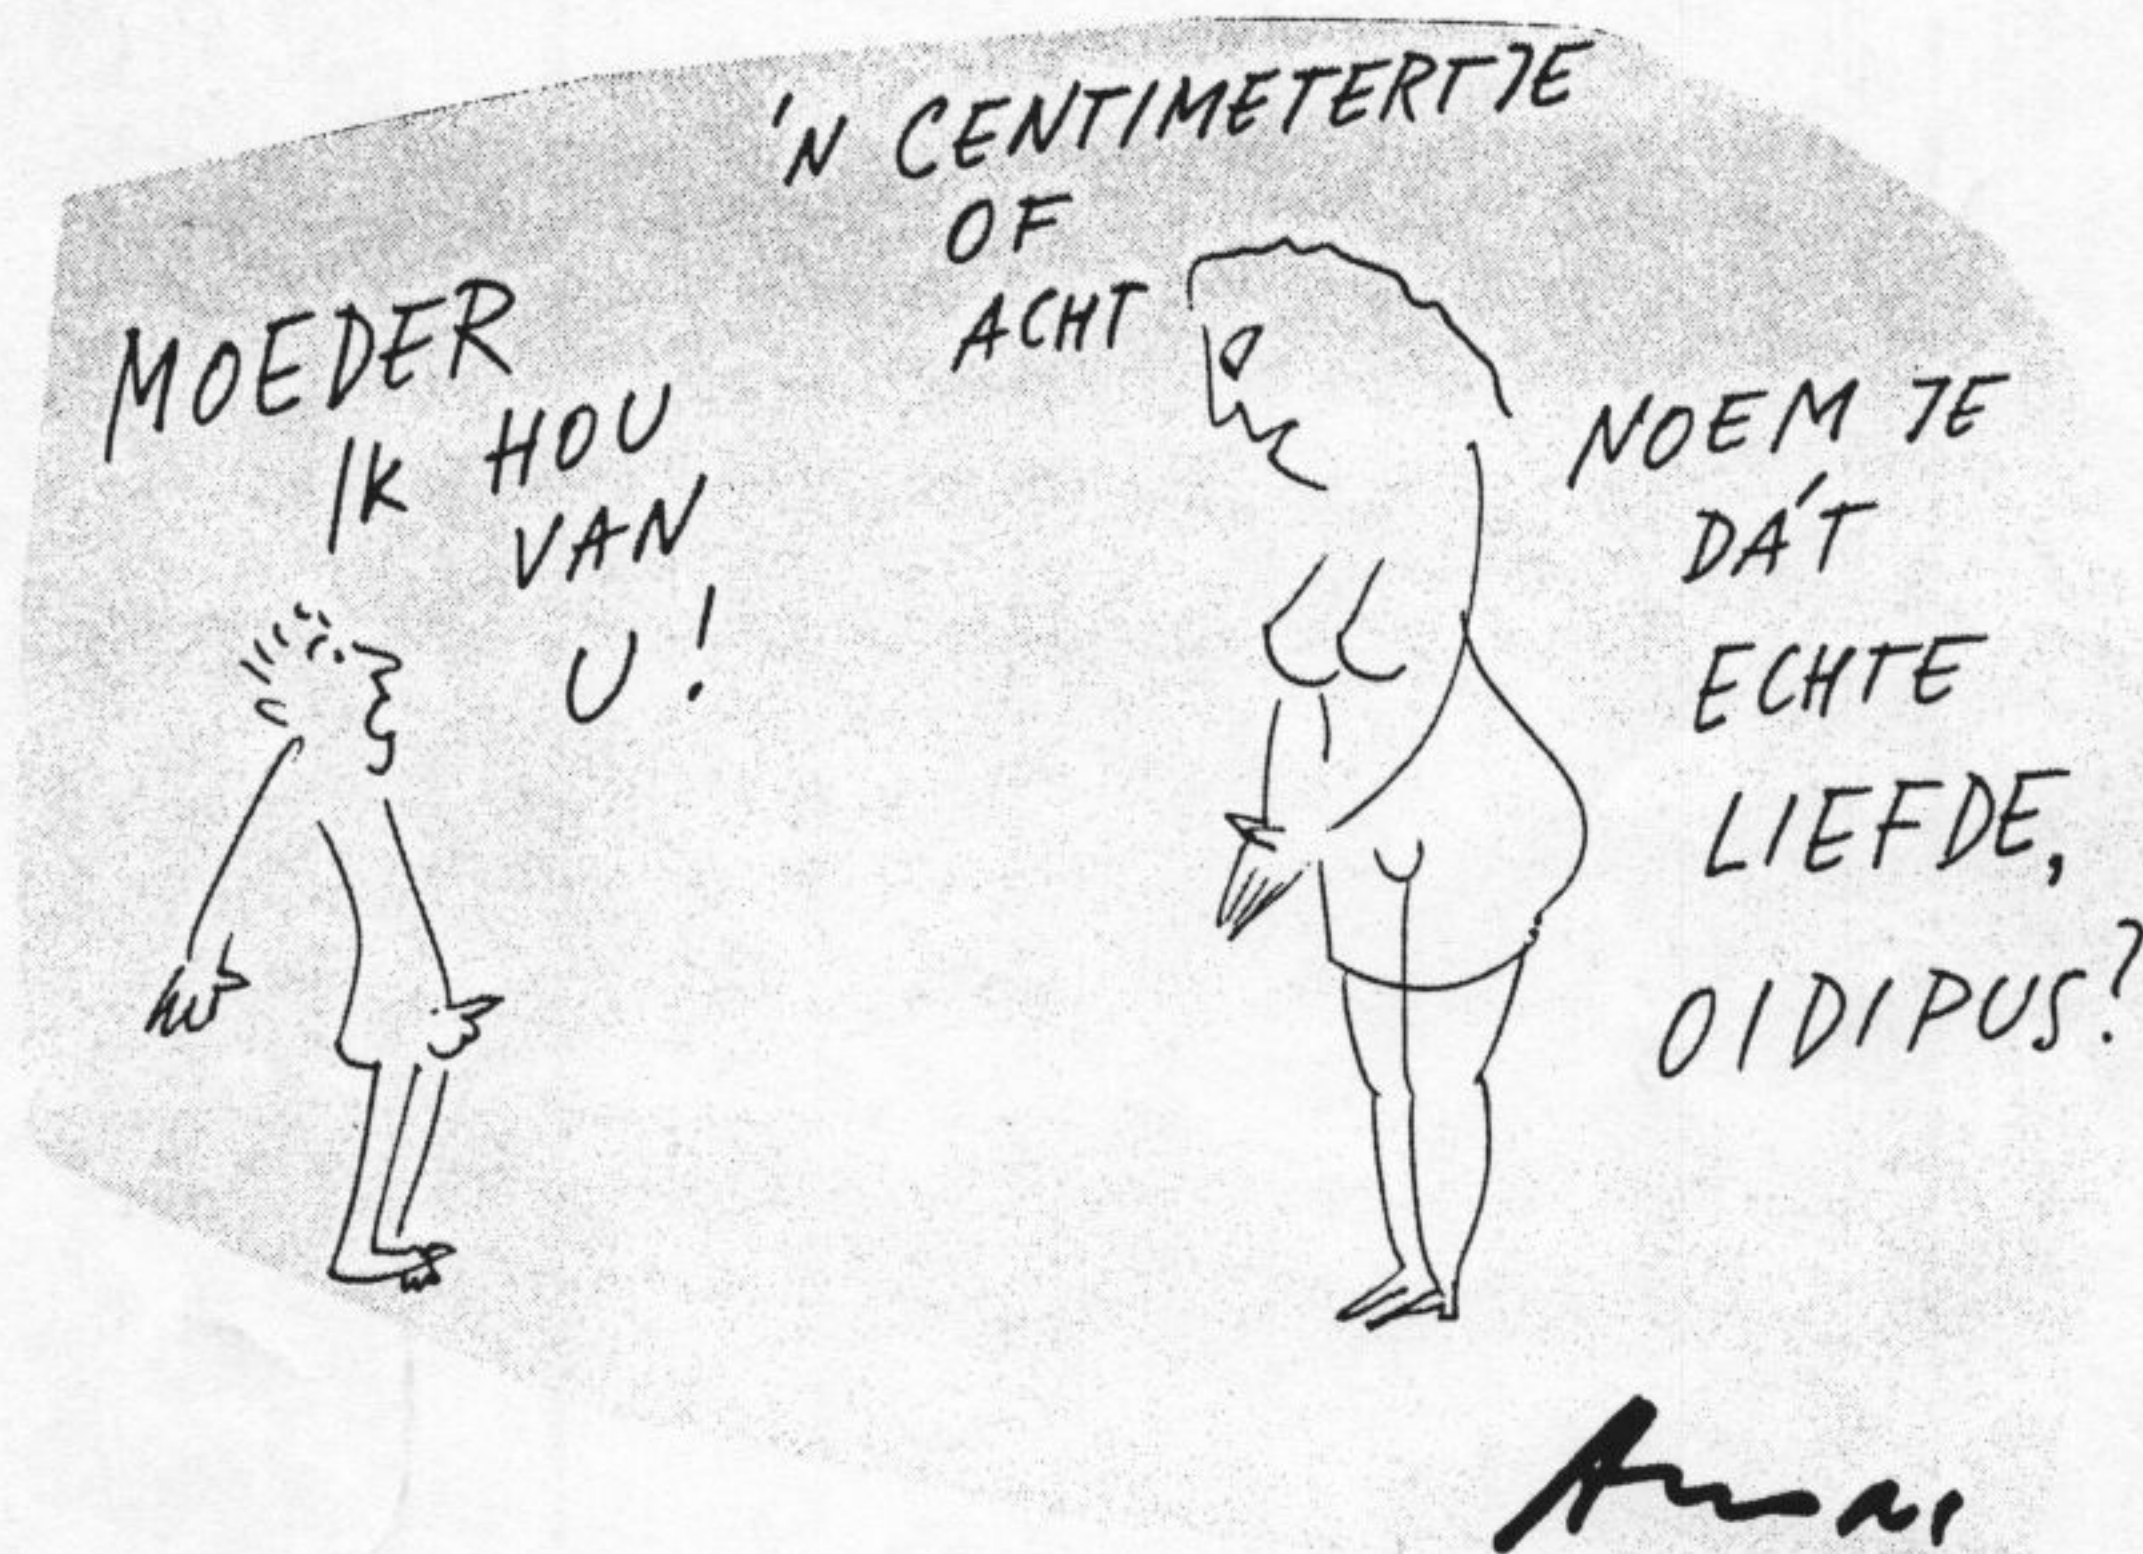 MOEDER
IK HOU
VAN
U!
'N CENTIMETERTJE
OF
ACHT
NOEM JE
DÁT
ECHTE
LIEFDE,
OIDIPUS?